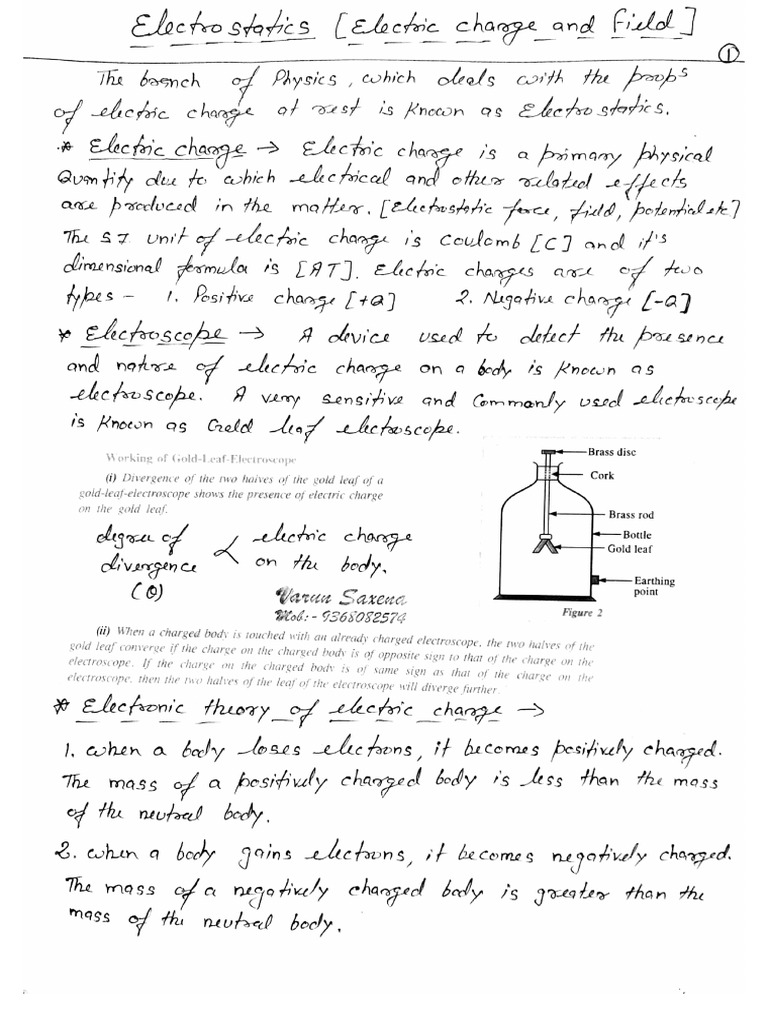 Electrostatics [Electric charge and Field]
1
The branch of Physics, which deals with the props
of electric charge at rest is known as Electrostatics.
* Electric charge → Electric charge is a primary physical
Quantity due to which electrical and other related effects
are produced in the matter. [Electrostatic force, field, potential etc]
The S.I. unit of electric charge is Coulomb [C] and it's
dimensional formula is [AT]. Electric charges are of two
types - 1. Positive charge [+Q] 2. Negative charge [-Q]
* Electroscope → A device used to detect the presence
and nature of electric charge on a body is known as
electroscope. A very sensitive and commonly used electroscope
is known as Gold leaf electroscope.
Working of Gold-Leaf-Electroscope
(i) Divergence of the two halves of the gold leaf of a
gold-leaf-electroscope shows the presence of electric charge
on the gold leaf.
degree of divergence (θ) ∝ electric charge on the body.
Varun Saxena
Mob:- 9368082574
Brass disc
Cork
Brass rod
Bottle
Gold leaf
Earthing
point
Figure 2
(ii) When a charged body is touched with an already charged electroscope, the two halves of the
gold leaf converge if the charge on the charged body is of opposite sign to that of the charge on the
electroscope. If the charge on the charged body is of same sign as that of the charge on the
electroscope, then the two halves of the leaf of the electroscope will diverge further.
* Electronic theory of electric charge →
1. when a body loses electrons, it becomes positively charged.
The mass of a positively charged body is less than the mass
of the neutral body.
2. when a body gains electrons, it becomes negatively charged.
The mass of a negatively charged body is greater than the
mass of the neutral body.